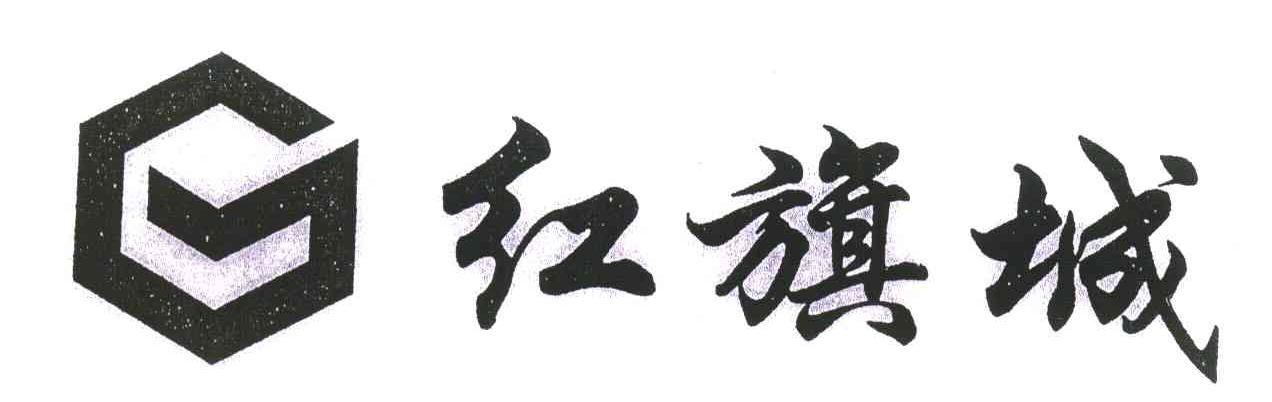 红旗城